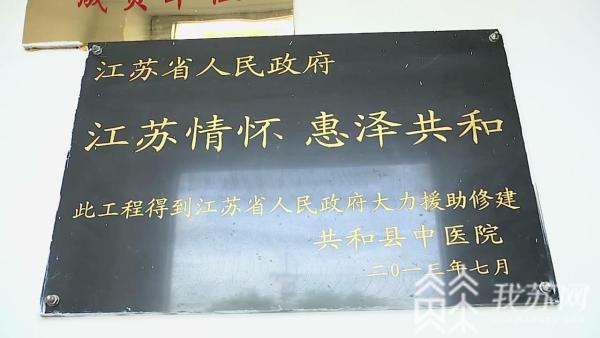 成员单位
江苏省人民政府
江苏情怀 惠泽共和
此工程得到江苏省人民政府大力援助修建
共和县中医院
二〇一三年七月
我苏网